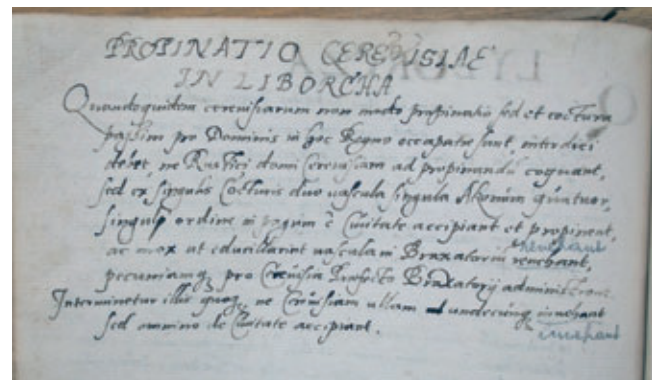 PROPINATIO CEREVISIAE
IN LIBORCHA
Quandoquidem cerevisiarum non modo propinatio sed et coctura
passim pro Dominis in hoc Regno occupatae sunt, interdici
debet, ne Rustici domi Cerevisiam ad propinandū coquant,
sed ex singulis Cocturis duo vascula singula Akonum quatuor,
singuli ordine in pagum è Civitate accipiant et propinent,
ac mox ut educillarint vascula in Braxatorium revehant,
revehant
pecuniamq, pro Cerevisia Praefecto Braxatorij administrent.
Interminetur illis quoq, ne Cerevisiam ullam undecunq, invehant
invehant
sed omnino de Civitate accipiant.